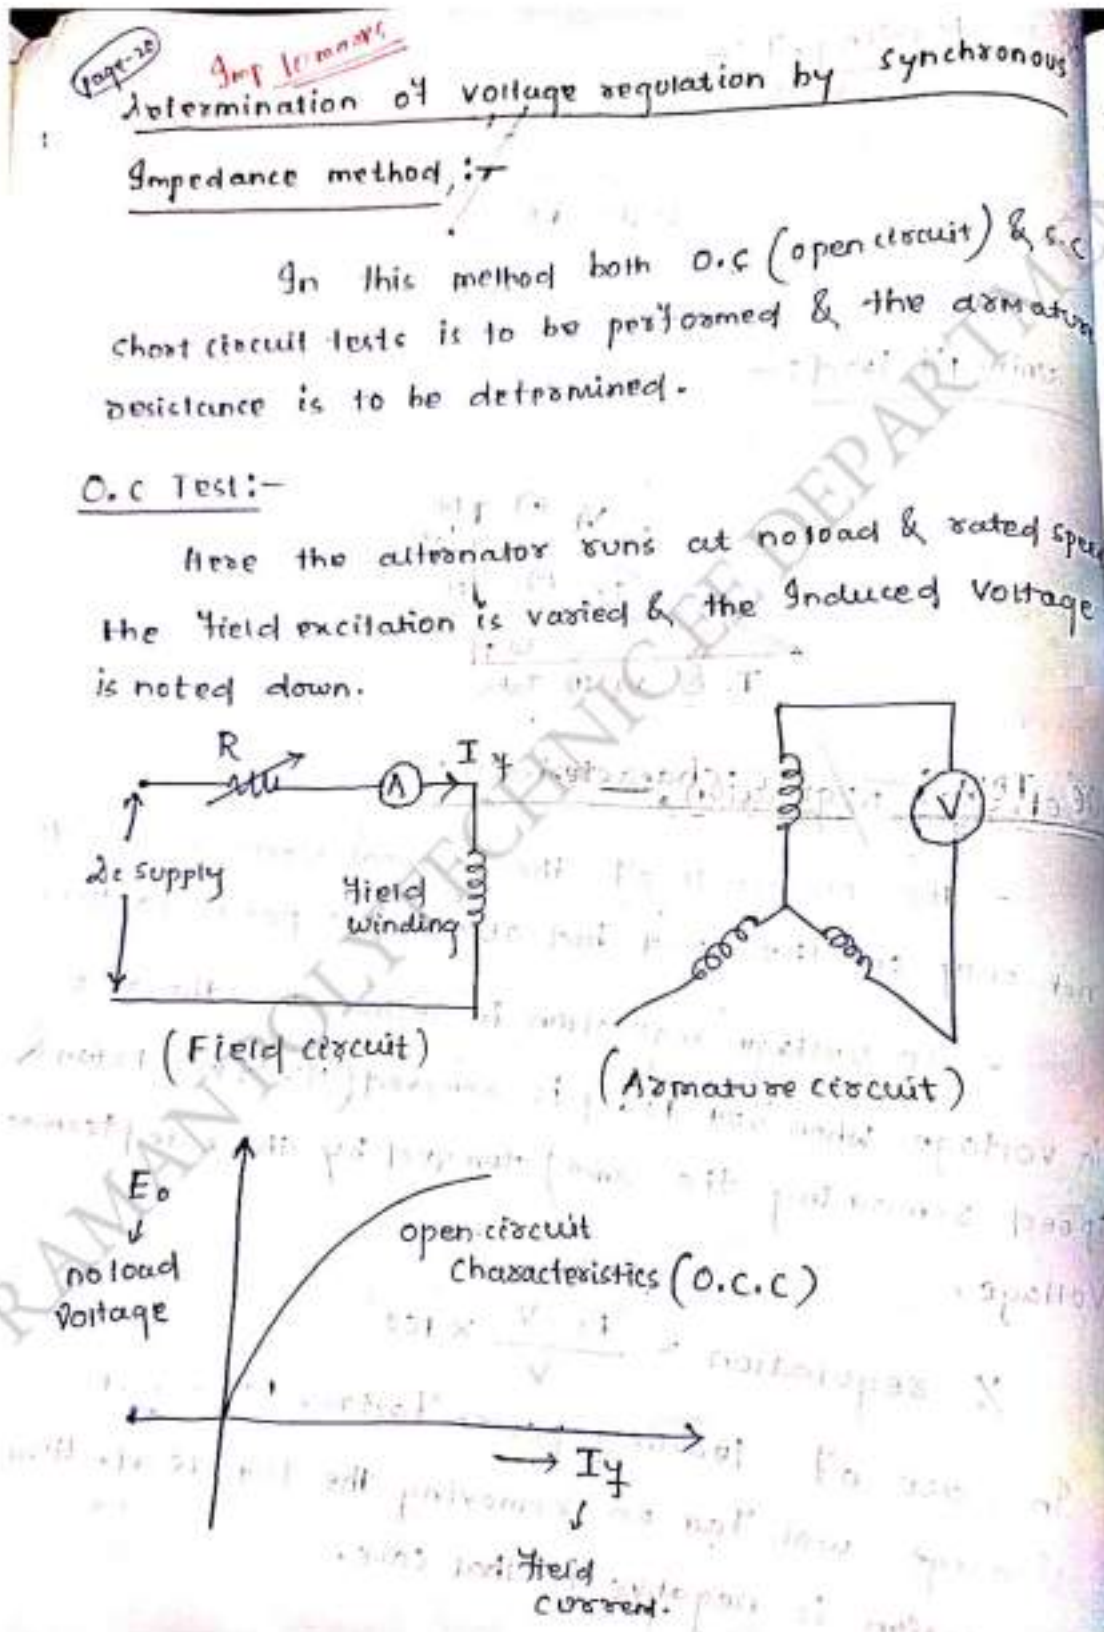 Page-20
Imp 10 marks
Determination of voltage regulation by synchronous
Impedance method,:-
In this method both O.C (open circuit) & S.C
short circuit tests is to be performed & the armature
resistance is to be determined.
O.C Test:-
Here the alternator runs at no load & rated speed
the field excitation is varied & the Induced Voltage
is noted down.
R
A
If
Dc supply
Field
winding
V
(Field circuit)
(Armature circuit)
E0
no load
Voltage
open circuit
Characteristics (O.C.C)
If
Field
current.
RAMANT POLYTECHNIC EE DEPARTMEN